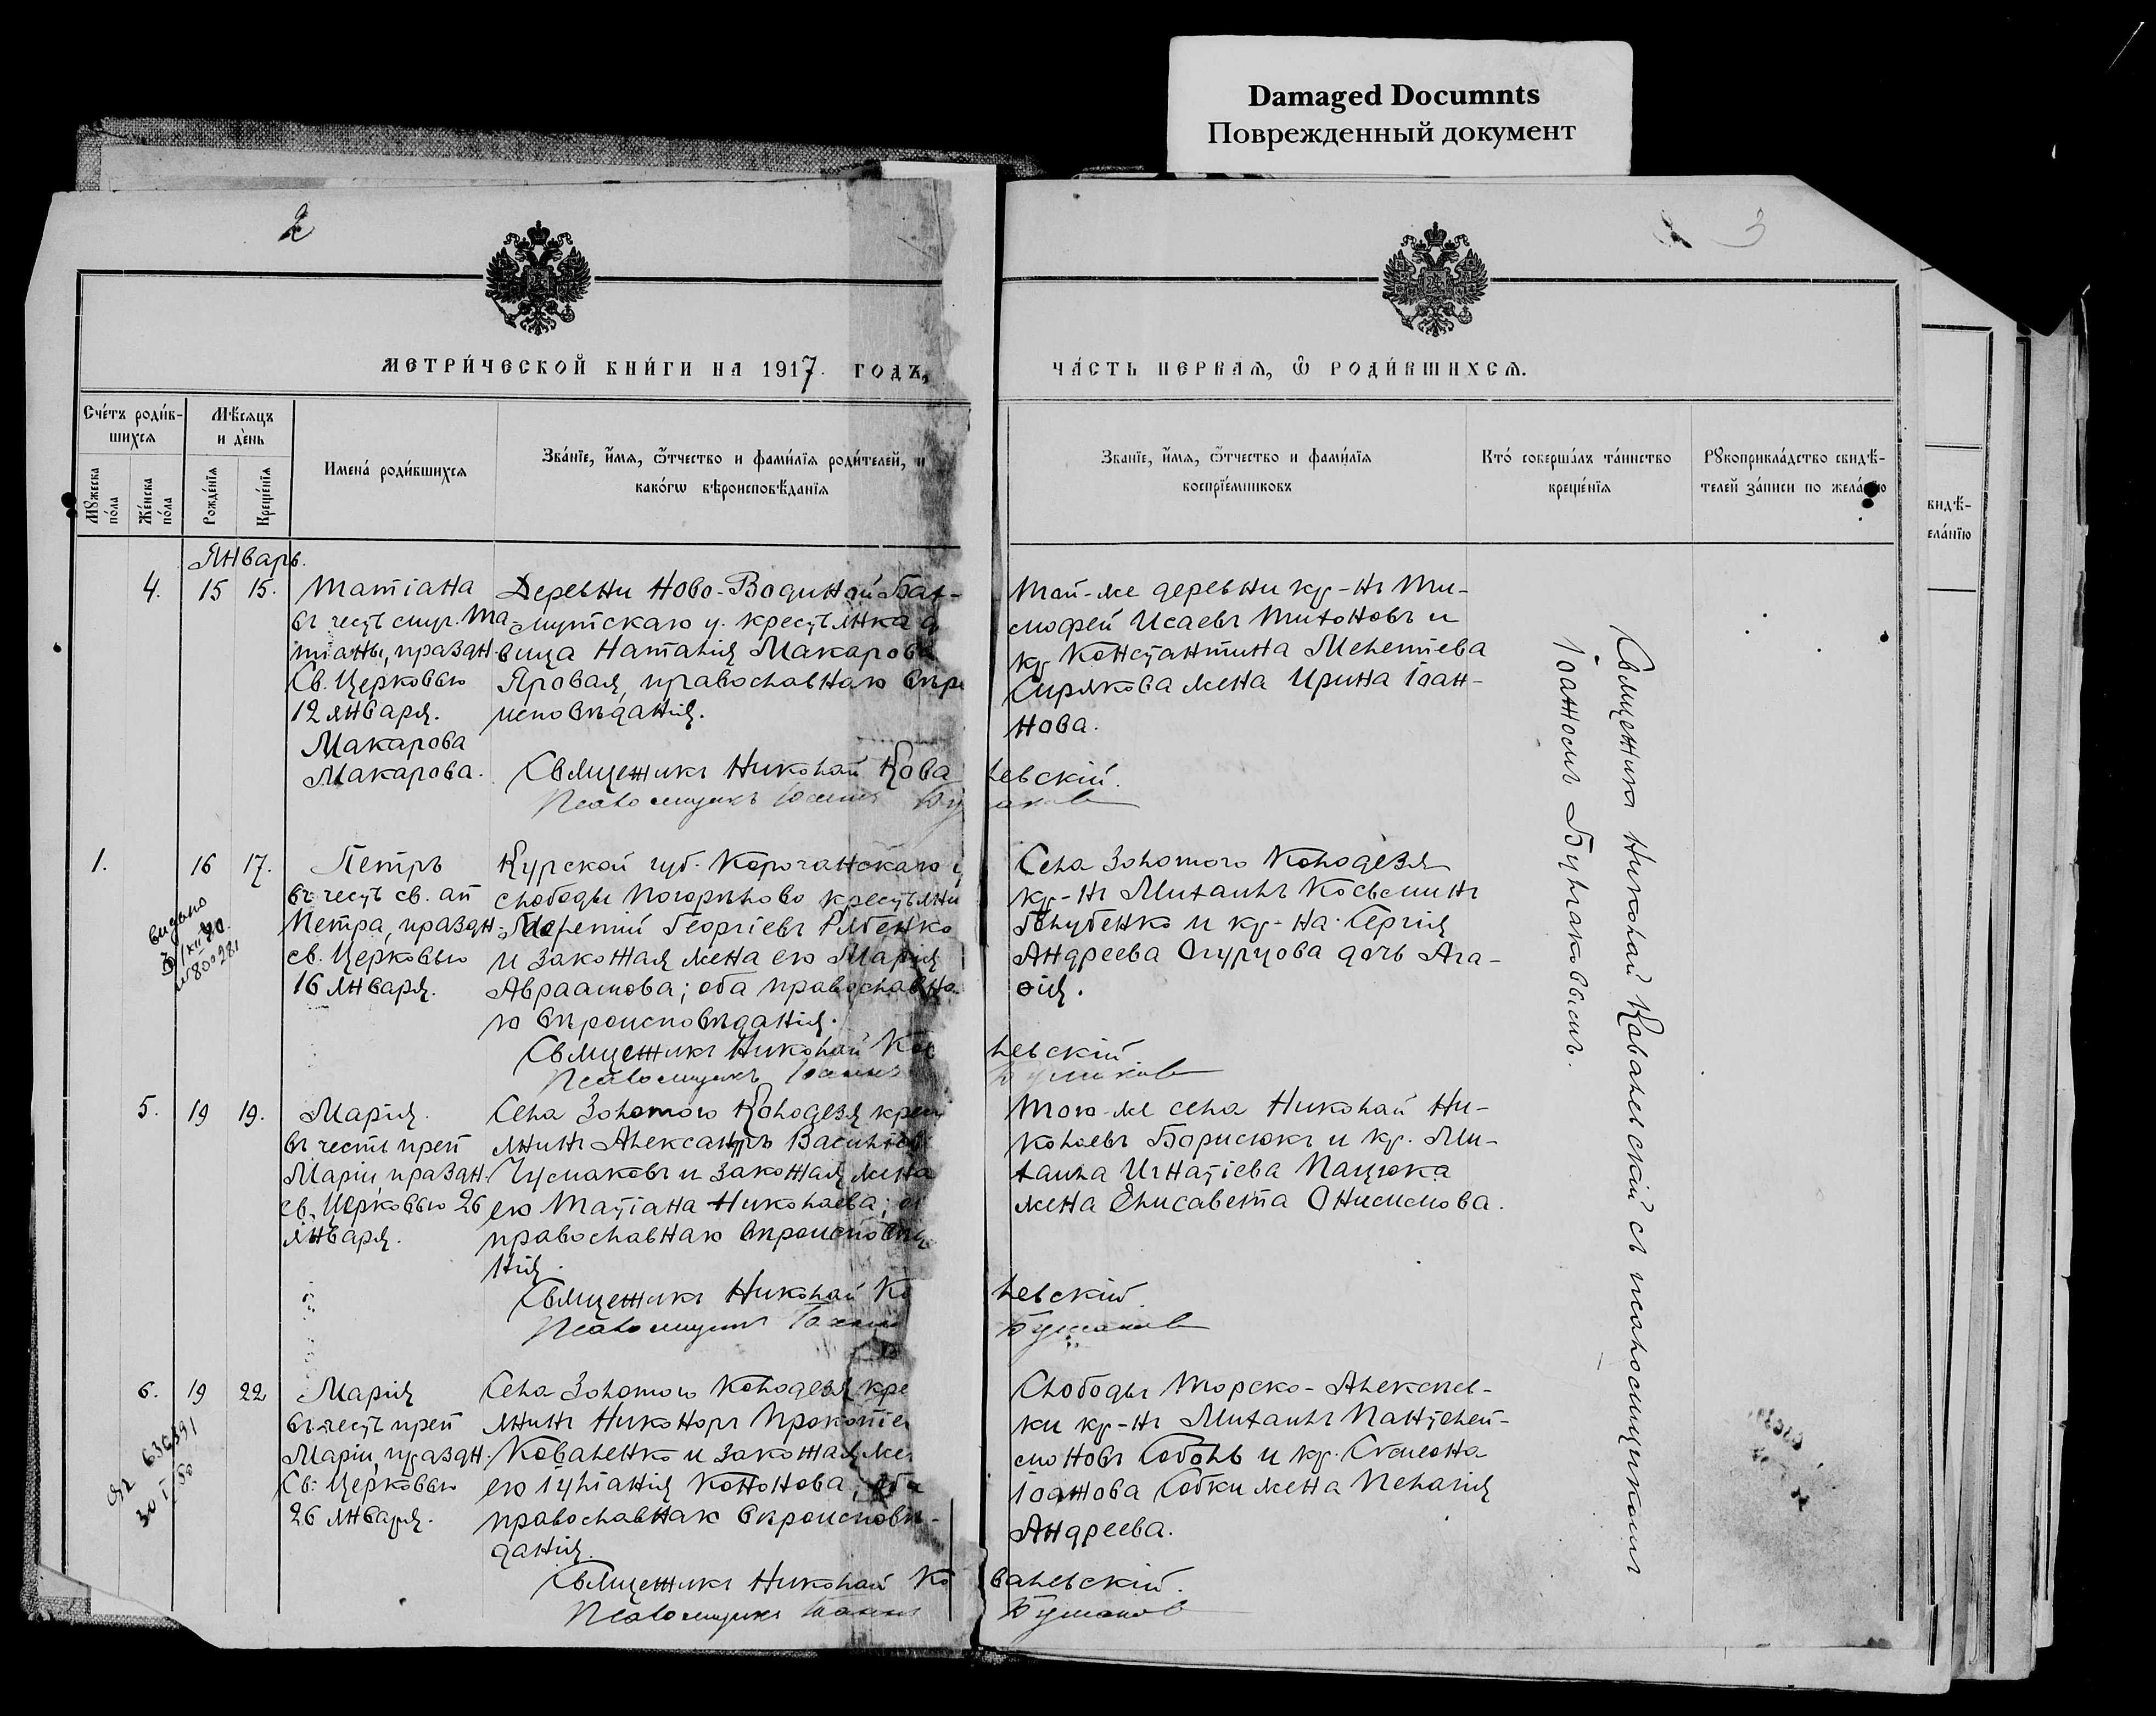 Damaged Documnts
Поврежденный документ
2
3
МЕТРИ́ЧЕСКОЙ КНИ́ГИ НА 1917. ГОДЪ,
ЧА́СТЬ ПЕРВАЯ, Ѡ РОДИ́ВШИХСЯ.
Сче́тъ роди́в-
шихся
Мѣ́сяцъ
и де́нь
Мꙋ́жеска
по́ла
Же́нска
по́ла
Рожде́нїѧ
Креще́нїѧ
Имена́ роди́вшихсѧ
Зва́нїе, и́мѧ, ѻ́тчество и фами́лїѧ роди́телей, и
како́гѡ вѣроисповѣ́данїѧ
Зва́нїе, и́мѧ, ѻ́тчество и фами́лїѧ
воспрїе́мниковъ
Кто́ соверша́лъ та́инство
креще́нїѧ
Рꙋкоприкла́дство свидѣ́-
телей за́писи по жела́нїю
видѣ́-
ела́нїю
Январь.
4.
15
15.
Татіана
въ честь муч. Та-
тіаны, праздн.
Св. Церковью
12 января.
Макарова
Макарова.
Деревни Ново-Водиной Бах-
мутскаго у. крестьянка д
вица Наталія Макарова
Яровая, православнаго вѣро
исповѣданія.
Священникъ Николай Кова
Псаломщикъ Іоаннъ
Той-же деревни кр-нъ Ти-
моѳей Исаевъ Тихоновъ и
кр. Константина Мелетіева
Сирякова жена Ирина Іоан-
нова.
левскій.
1.
16
17.
выдано
Петръ
въ честь св. ап
Петра, праздн.
св. Церковью
16 января.
Курской губ. Корочанскаго у
слободы Погорѣлово крестьяни
Мелетій Георгіевъ Рябенко
и законная жена его Марія
Авраамова; оба православна
го вѣроисповѣданія.
Священникъ Николай Ков
Псаломщикъ Іоаннъ
Села Золотого Колодезя
кр-нъ Михаилъ Косьминъ
Голубенко и кр-на Сергія
Андреева Огурцова дочь Ага-
ѳія.
левскій
5.
19
19.
Марія.
въ честь преп
Маріи, праздн.
св. Церковью 26
января.
Села Золотого Колодезя крест
янинъ Александръ Васильев
Чумаковъ и законная жена
его Татіана Николаева; об
православнаго вѣроисповѣда
нія.
Священникъ Николай Ко
Псаломщикъ Іоаннъ
Того-же села Николай Ни-
колаевъ Борисюкъ и кр. Ми-
хаила Игнатіева Пацюка
жена Елисавета Онисимова.
левскій.
6.
19
22
30 I 50
Марія
въ честь преп
Маріи, праздн.
Св. Церковью
26 января.
Села Золотого Колодезя кре
янинъ Никоноръ Прокопіев
Коваленко и законная же
его Іуліанія Кононова; оба
православнаго вѣроисповѣ-
данія.
Священникъ Николай Ко
Псаломщикъ Іоаннъ
Слободы Торско-Алексѣев-
ки кр-нъ Михаилъ Пантелей-
моновъ Соболь и кр. Симеона
Іоаннова Собки жена Пелагія
Андреева.
валевскій.
Священникъ Николай Ковалевскій съ псаломщикомъ
Іоанномъ Булмаковымъ.